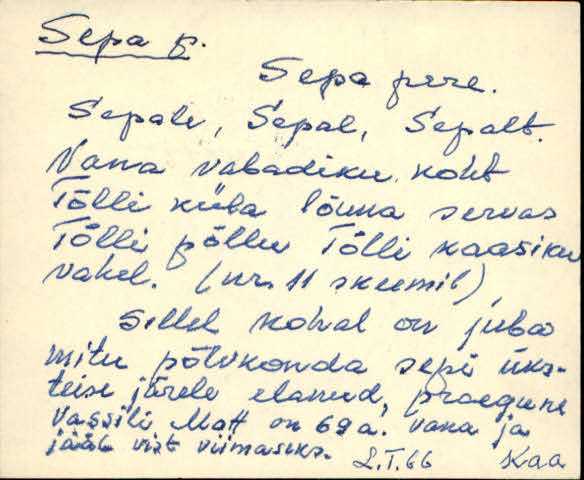 Sepa p.
Sepa pere.
Sepale, Sepal, Sepalt.
Vana vabadiku koht
Tõlli küla lõuna servas
Tõlli põllu Tõlli kaasiku
vahel. (nr. 11 skeemil)
Sellel kohal on juba
mitu põlvkonda sepi üks-
teise järele elanud, praegune
Vassili Matt on 69 a. vana ja
jääb vist viimaseks.
2.I.66 Kaa